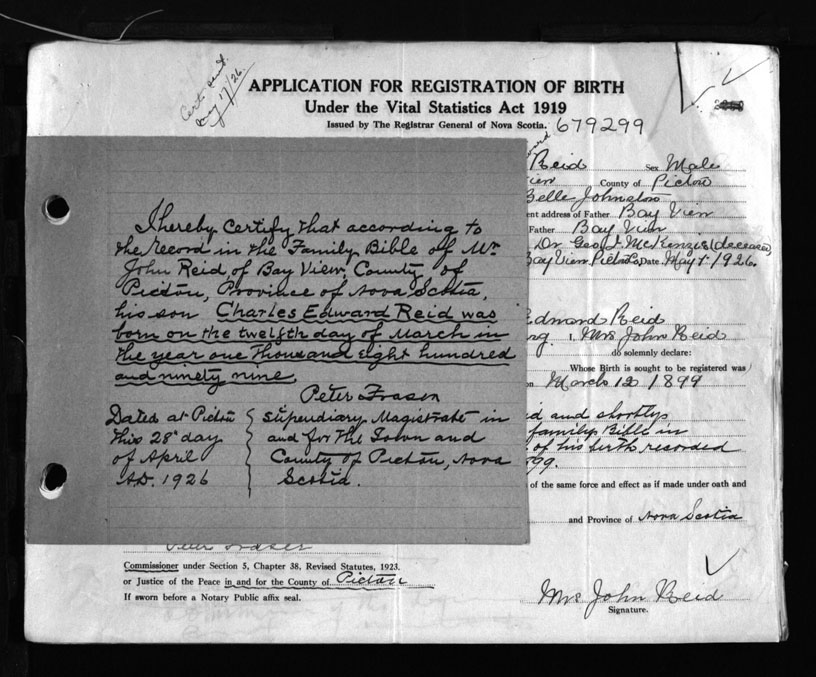 Cert. sent.
May 17/26.
APPLICATION FOR REGISTRATION OF BIRTH
Under the Vital Statistics Act 1919
Issued by The Registrar General of Nova Scotia.
679299
Reid Sex Male
View County of Pictou
Belle Johnston
ent address of Father Bay View
Father Bay View
Dr Geo. I. McKenzie (deceased)
Bay View Pictou Co. Date May 1st 1926.
I hereby Certify that according to
the record in the Family Bible of Mr
John Reid of Bay View, County of
Pictou, Province of Nova Scotia,
his son Charles Edward Reid was
born on the twelfth day of March in
the year one thousand eight hundred
and ninety nine.
Peter Fraser
Dated at Pictou
this 28th day
of April
A.D. 1926
Stipendiary Magistrate in
and for the Town and
County of Pictou, Nova
Scotia.
Edward Reid
I, Mrs John Reid
do solemnly declare:
Whose Birth is sought to be registered was
on March 12 1899
and shortly
family Bible in
of his birth recorded
99.
of the same force and effect as if made under oath and
and Province of Nova Scotia
Peter Fraser
Commissioner under Section 5, Chapter 38, Revised Statutes, 1923.
or Justice of the Peace in and for the County of Pictou
If sworn before a Notary Public affix seal.
Mrs John Reid
Signature.